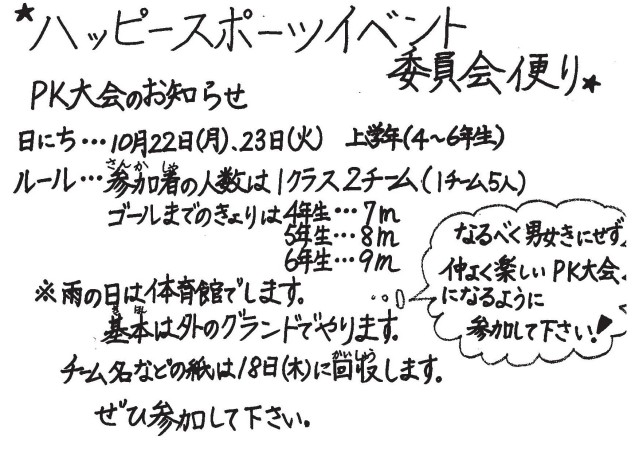 ★ハッピースポーツイベント
委員会便り★
PK大会のお知らせ
日にち…10月22日(月)、23日(火) 上学年(4〜6年生)
さんか しゃ
ルール…参加署の人数は1クラス2チーム(1チーム5人)
ゴールまでのきょりは4年生…7m
5年生…8m
6年生…9m
なるべく男女きにせず、
仲よく楽しいPK大会
になるように
参加して下さい!
※雨の日は体育館でします。
きほん
基本は外のグランドでやります。
かいしゅう
チーム名などの紙は18日(木)に回収します。
ぜひ参加して下さい。